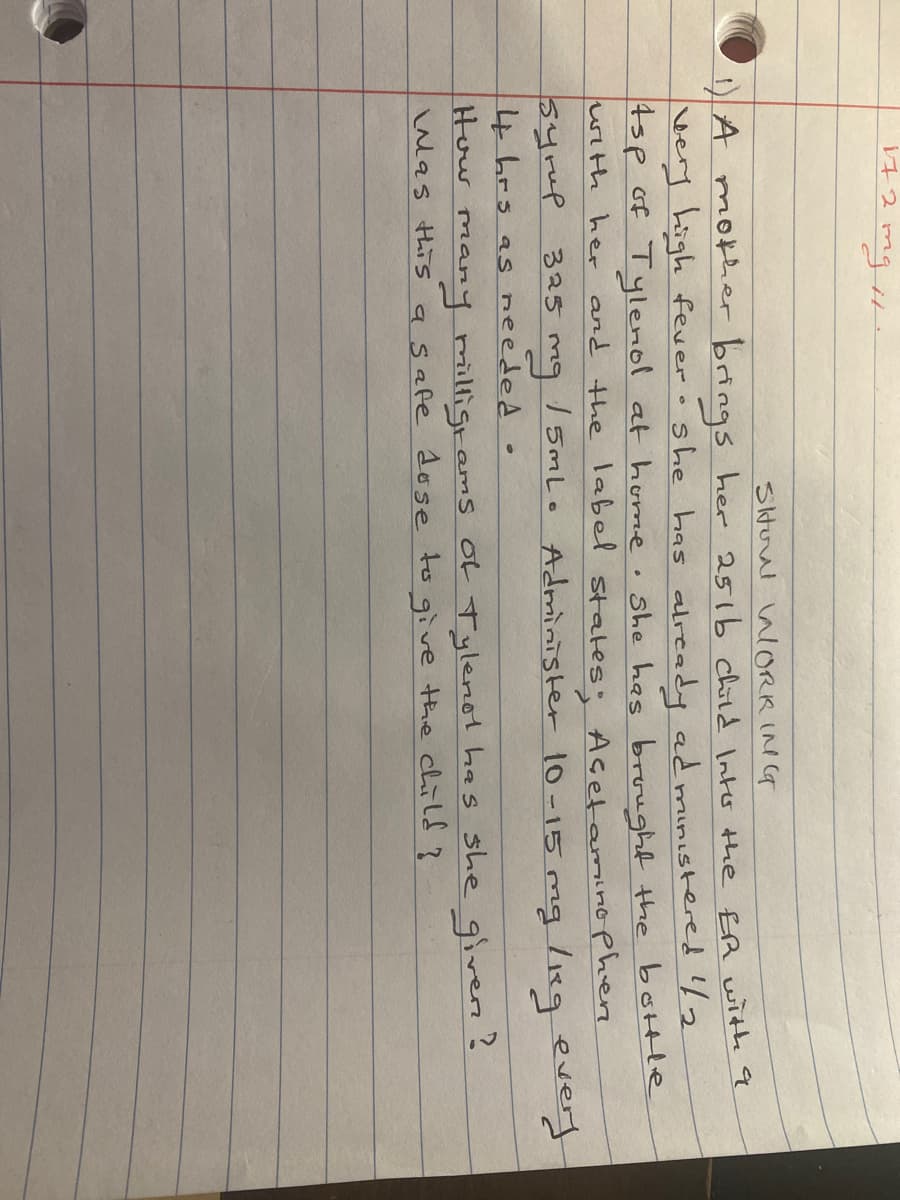 172 mg //.
SHOW WORKING
1) A mother brings her 25lb child Into the ER with a
very high fever. she has already administered 1/2
tsp of Tylenol at home. She has brought the bottle
with her and the label states; Acetaminophen
syrup 325 mg / 5mL. Administer 10-15 mg /kg every
4 hrs as needed.
How many milligrams of Tylenol has she given?
Was this a safe dose to give the child?